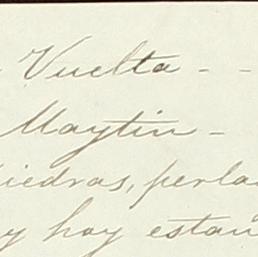 - Vuelta - -
Maytin -
iedras, perla
y hoy estan